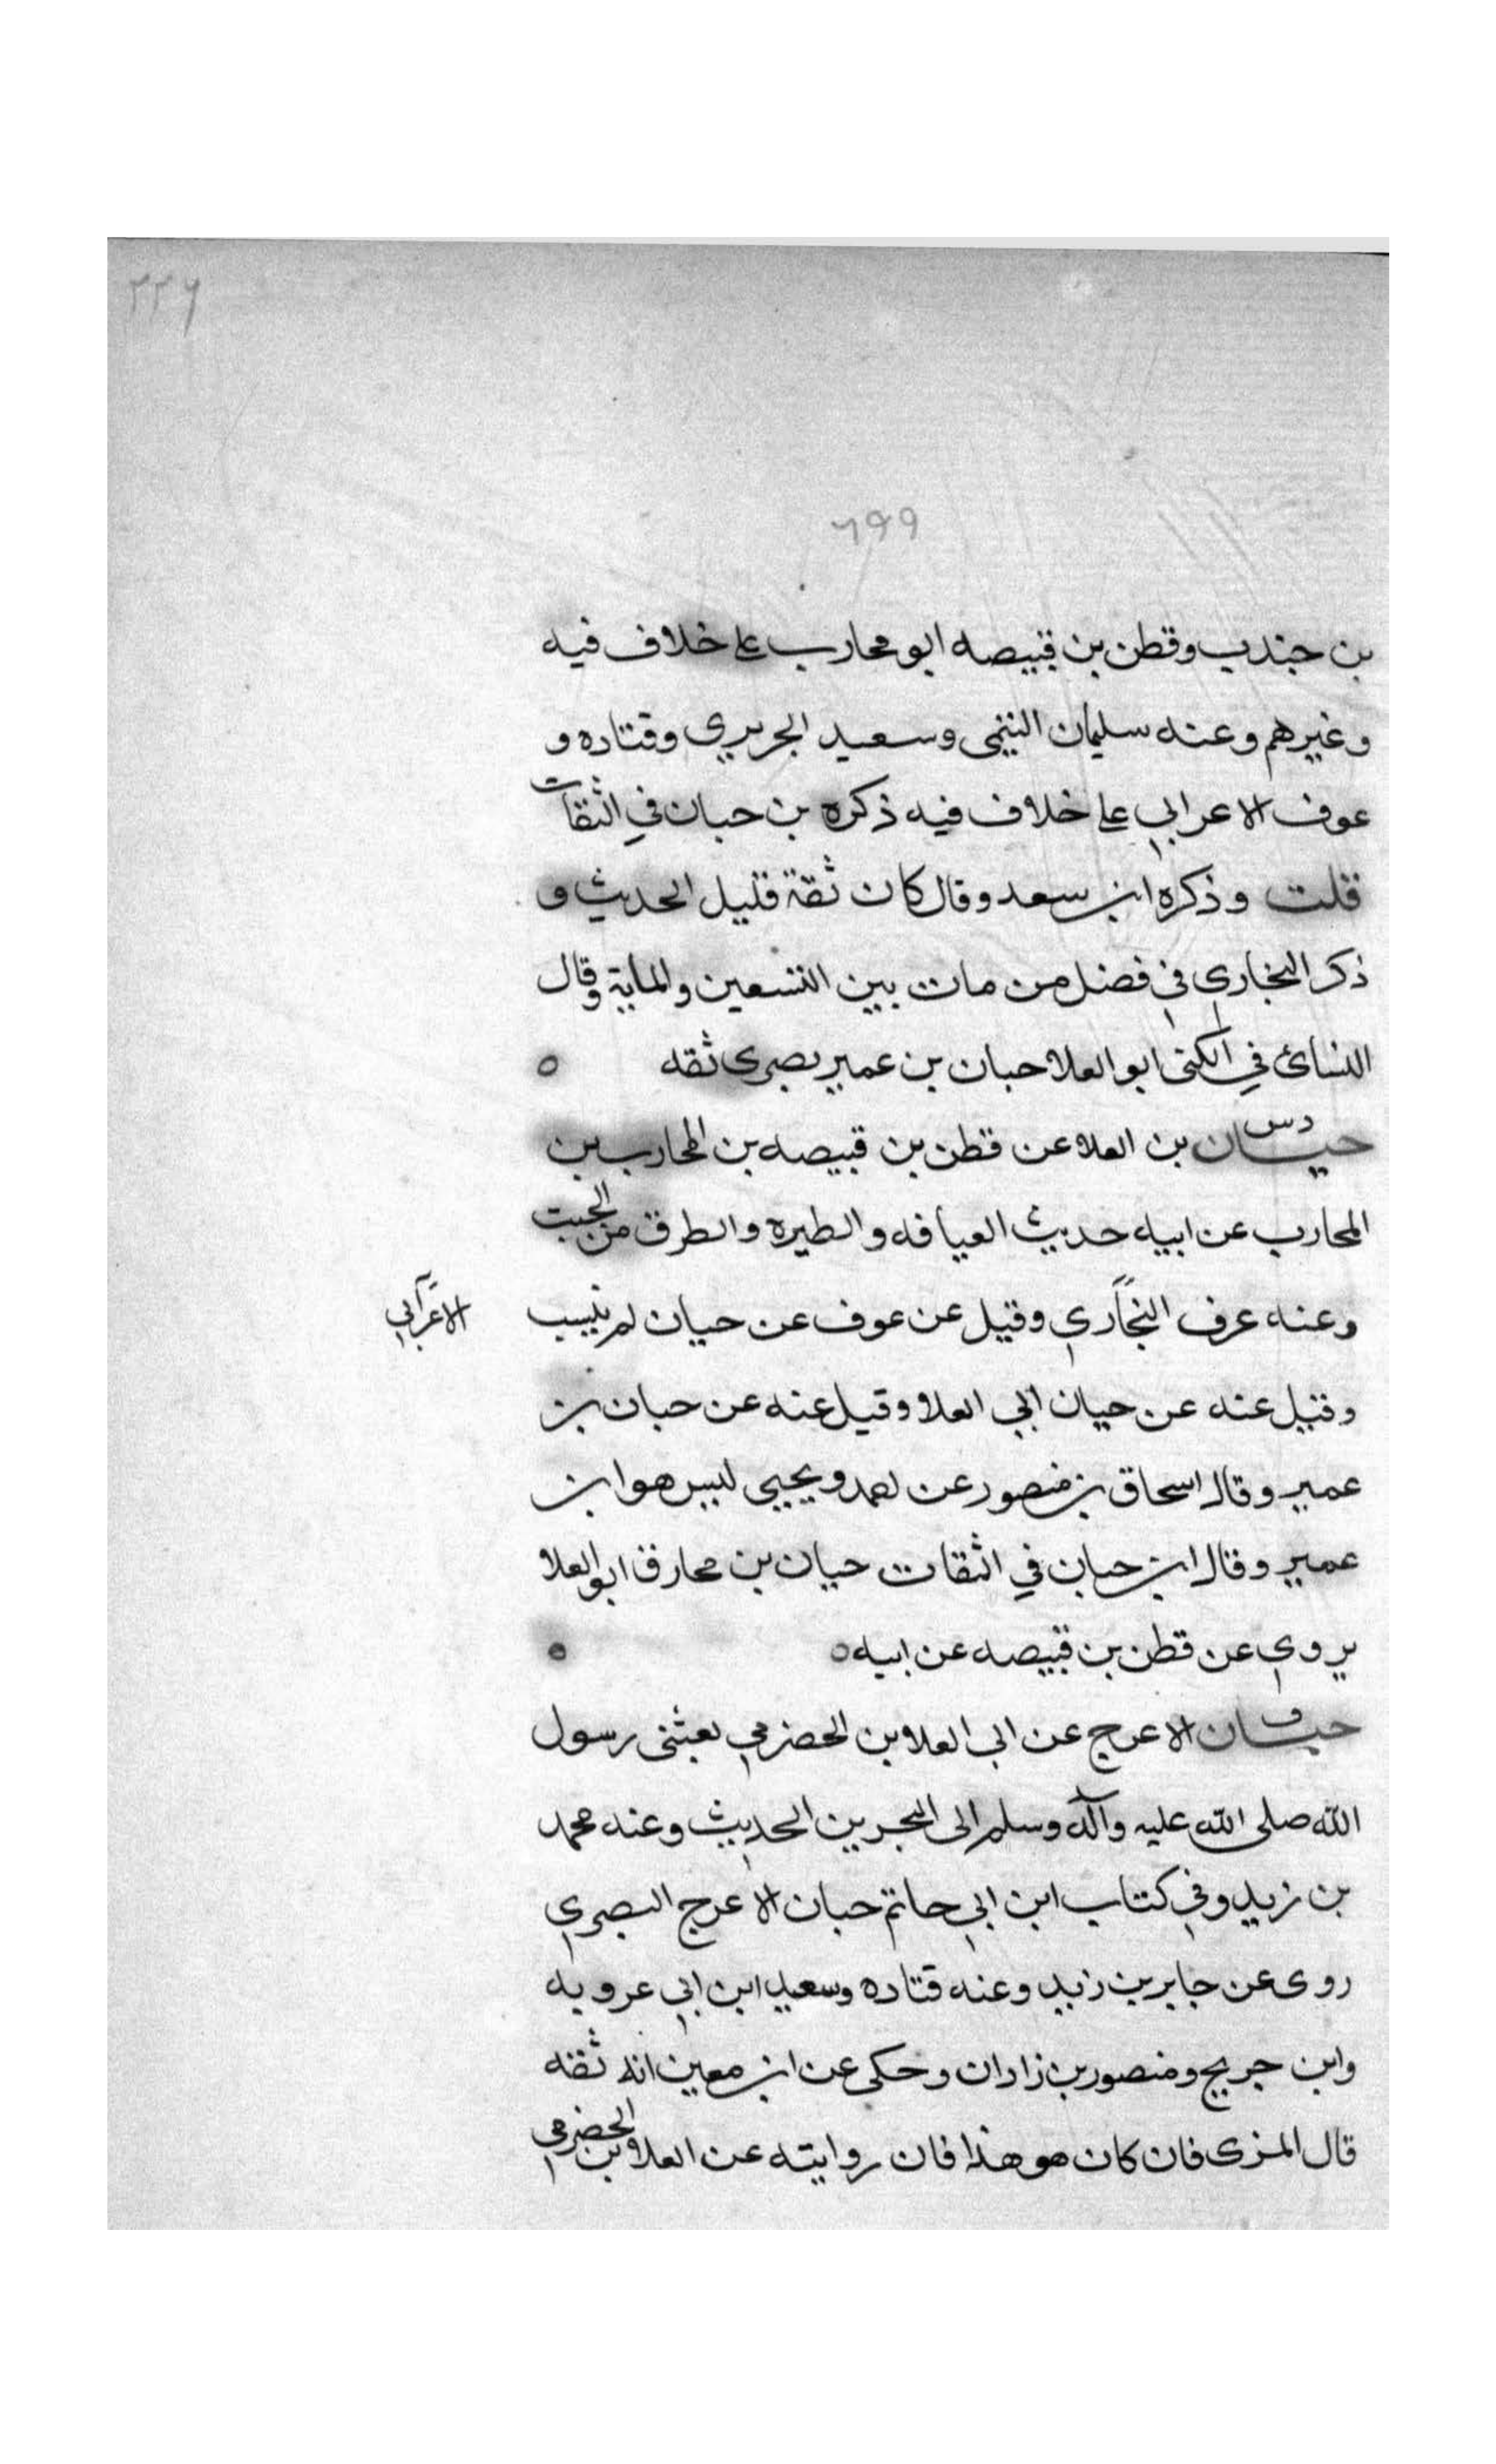 ٢٢٦
٦٩٩
بن جندب وقطن بن قبيصه ابو محارب على خلاف فيه
وغيرهم وعنه سليمان التيمى وسعيد الجريري وقتاده و
عوف الاعرابي على خلاف فيه ذكره بن حبان في الثقات
قلت وذكره ابن سعد وقال كان ثقة قليل الحديث و
ذكر البخاري في فضل من مات بين التسعين والماية وقال
النسائ في الكنى ابو العلا حبان بن عمير بصرى ثقه ٥
د س
حيان بن العلا عن قطن بن قبيصه بن المحارب بن
المحارب عن ابيه حديث العيافه والطيره والطرق من الجبت
وعنه عرف النجاري وقيل عن عوف عن حيان لم ينسب
الاعرابي
وقيل عنه عن حيان ابي العلا وقيل عنه عن حبان بن
عمير وقال اسحاق بن منصور عن احمد ويحيى ليس هو ابن
عمير وقال ابن حبان في الثقات حيان بن محارق ابو العلا
يروي عن قطن بن قبيصه عن ابيه ٥ ٥
ق
حيان الاعرج عن ابي العلا بن الحضرمي بعثنى رسول
الله صلى الله عليه وآله وسلم الى البحرين الحديث وعنه محمد
بن زيد وفي كتاب ابن ابي حاتم حبان الاعرج البصري
روى عن جابر بن زيد وعنه قتاده وسعيد ابن ابي عروبه
وابن جريج ومنصور بن زادان وحكى عن ابن معين انه ثقه
قال المزى فان كان هو هذا فان روايته عن العلا بن الحضرمي